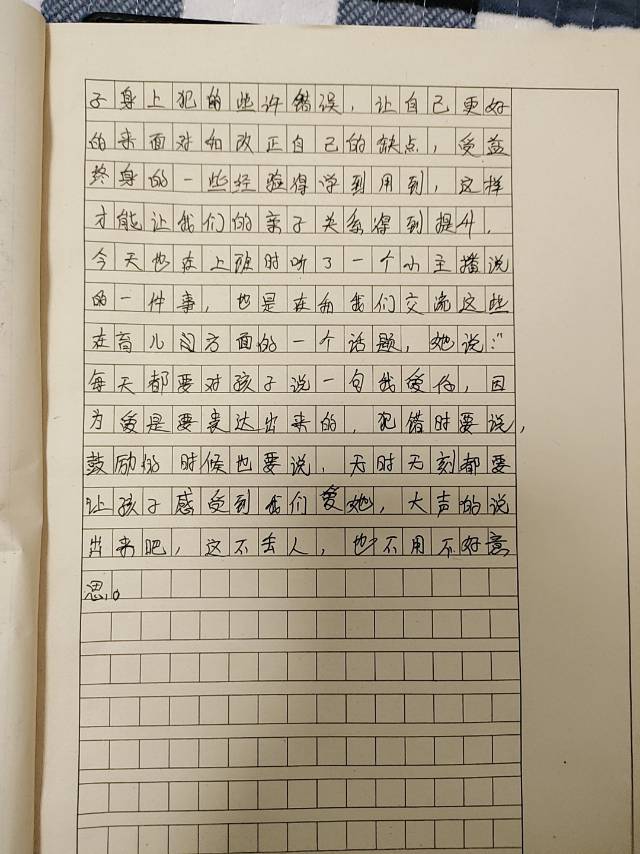 子身上犯的些许错误，让自己更好
的来面对和改正自己的缺点，受益
终身的一些经验得学到用到，这样
才能让我们的亲子关系得到提升．
今天也在上班时听了一个小主播说
的一件事，也是在和我们交流这些
在育儿间方面的一个话题，她说："
每天都要对孩子说一句我爱你，因
为爱是要表达出来的，犯错时要说，
鼓励的时候也要说，无时无刻都要
让孩子感受到我们爱她，大声的说
出来吧，这不丢人，也不用不好意
思。